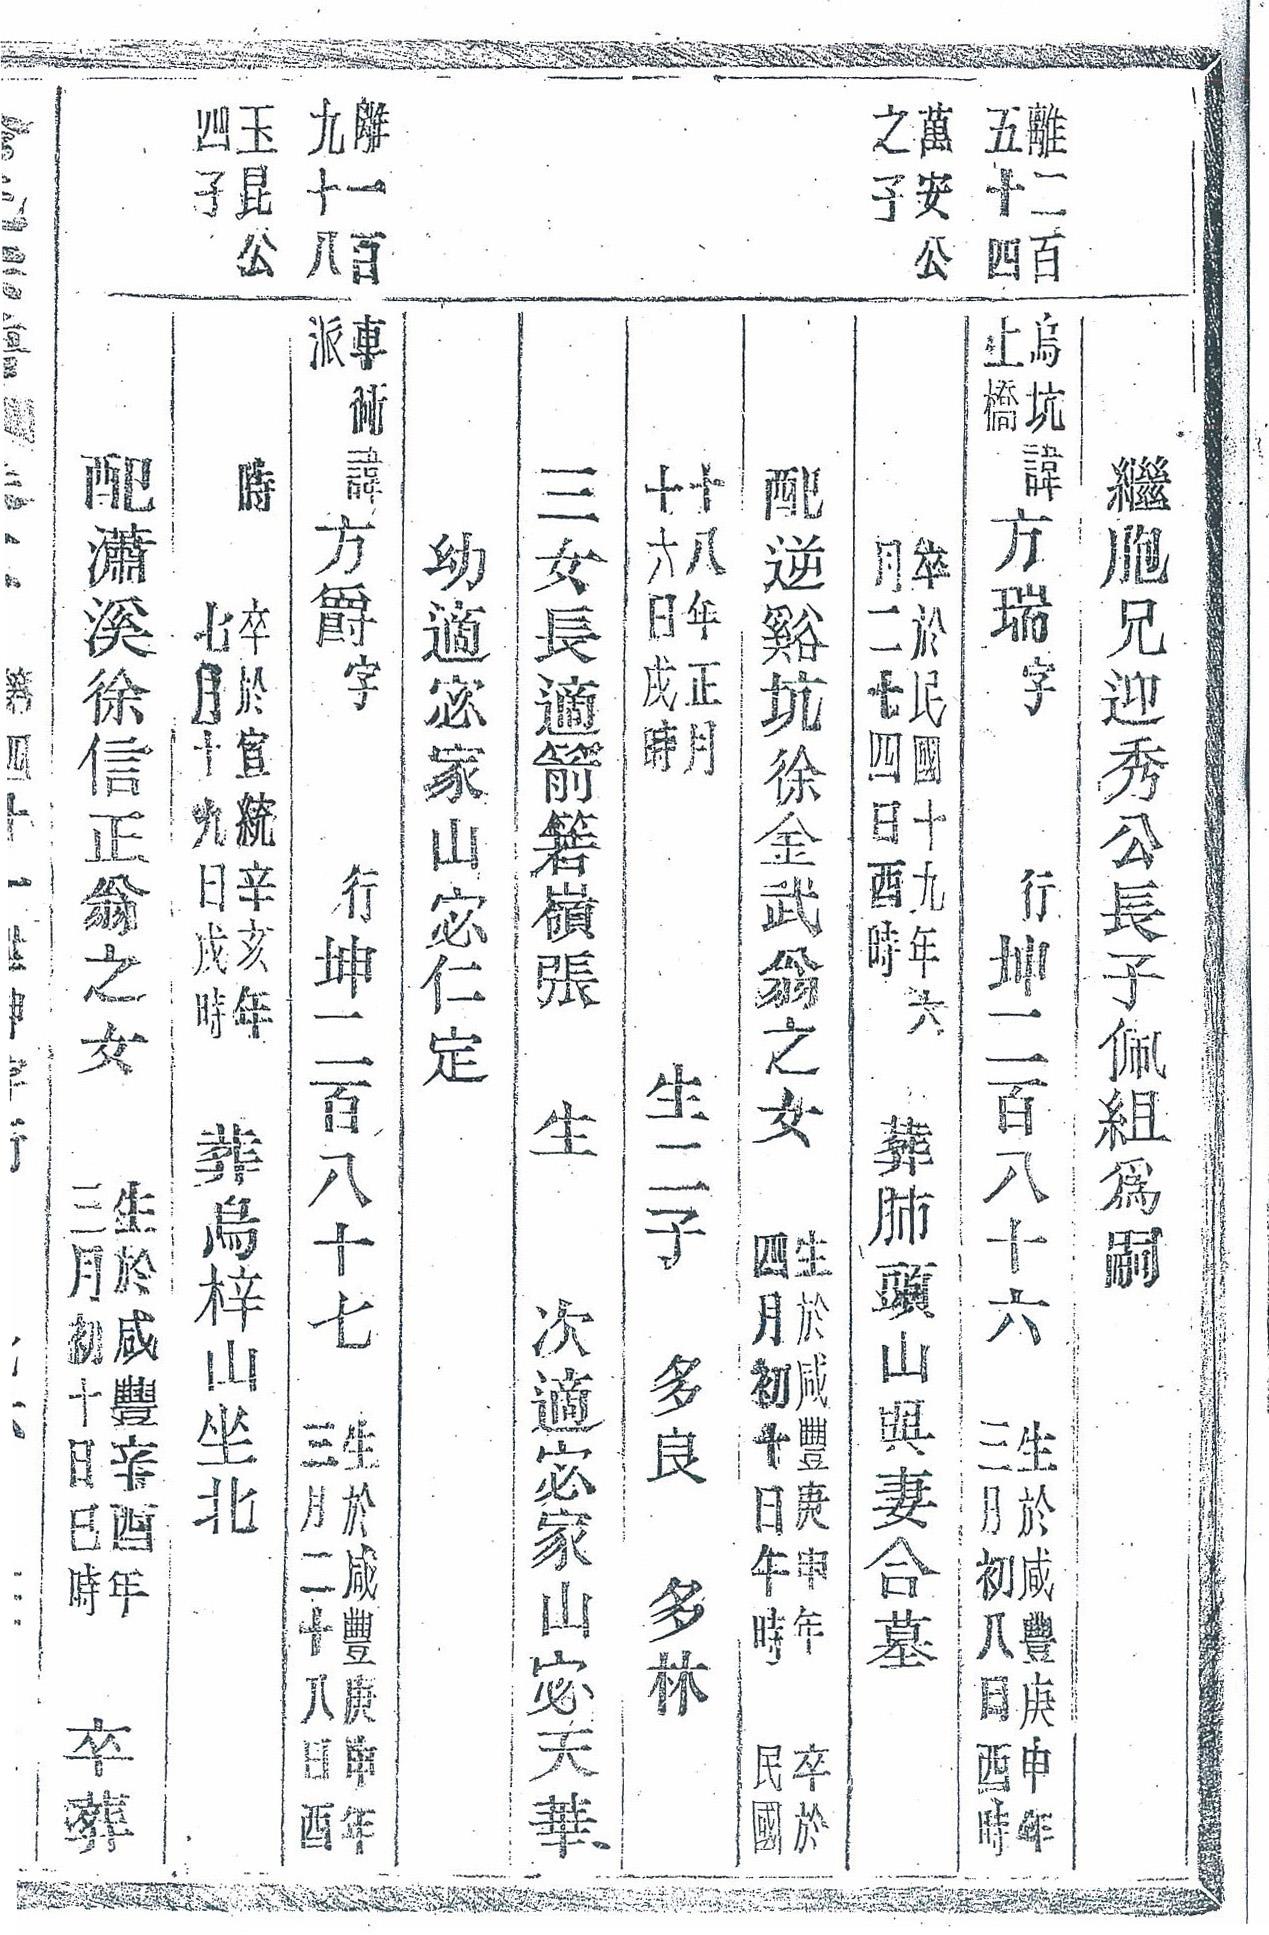 繼胞兄迎秀公長子佩組爲嗣
離二百
五十四
烏坑
上橋
諱方瑞字 行坤二百八十六 生於咸豐庚申年
三月初八日酉時
萬安公
之子
卒於民國十九年六
月二十四日酉時 葬肺頭山與妻合墓
配逆谿坑徐金武翁之女 生於咸豐庚申年
四月初十日午時 卒於
民國
十八年正月
十六日戌時 生二子 多良 多林
三女長適箭箬嶺張 生 次適宓家山宓天華
幼適宓家山宓仁定
離一百
九十八
專術
派
諱方爵字 行坤二百八十七 生於咸豐庚申年
三月二十八日酉
玉昆公
四子
時 卒於宣統辛亥年
七月十九日戌時 葬烏梓山坐北
配瀟溪徐信正翁之女 生於咸豐辛酉年
三月初十日巳時 卒葬